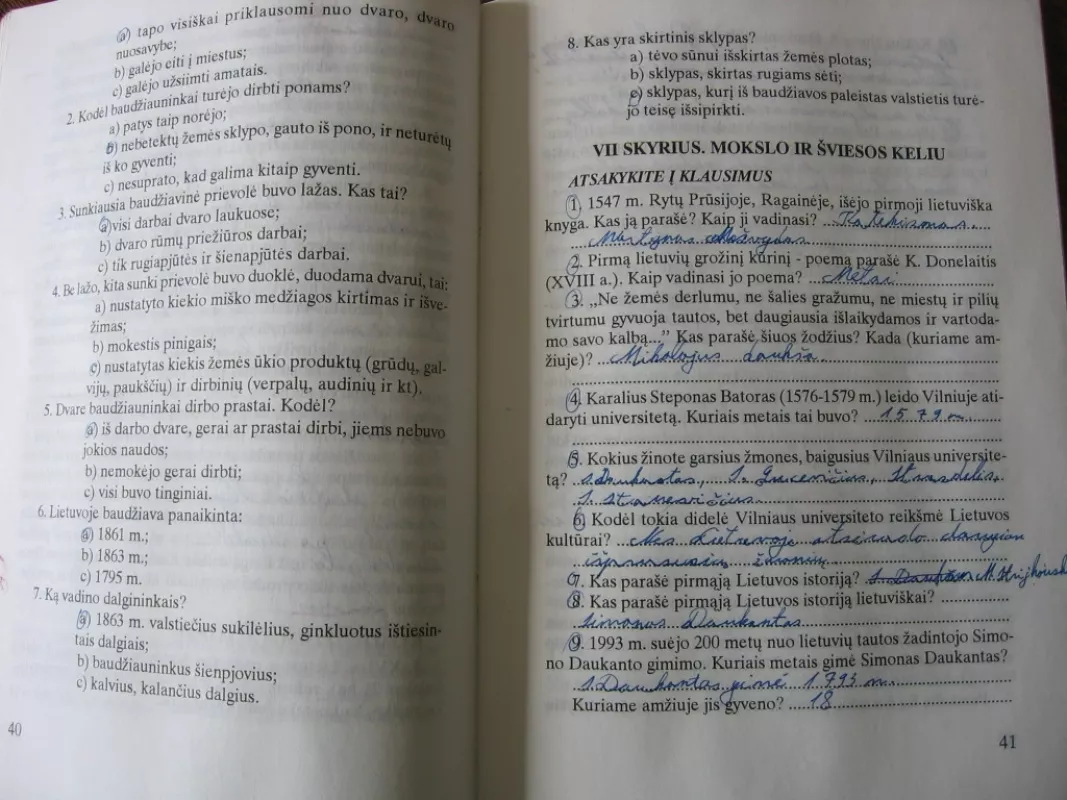 a) tapo visiškai priklausomi nuo dvaro, dvaro
nuosavybe;
b) galėjo eiti į miestus;
c) galėjo užsiimti amatais.
2. Kodėl baudžiauninkai turėjo dirbti ponams?
a) patys taip norėjo;
b) nebetektų žemės sklypo, gauto iš pono, ir neturėtų
iš ko gyventi;
c) nesuprato, kad galima kitaip gyventi.
3. Sunkiausia baudžiavinė prievolė buvo lažas. Kas tai?
a) visi darbai dvaro laukuose;
b) dvaro rūmų priežiūros darbai;
c) tik rugiapjūtės ir šienapjūtės darbai.
4. Be lažo, kita sunki prievolė buvo duoklė, duodama dvarui, tai:
a) nustatyto kiekio miško medžiagos kirtimas ir išve-
žimas;
b) mokestis pinigais;
c) nustatytas kiekis žemės ūkio produktų (grūdų, gal-
vijų, paukščių) ir dirbinių (verpalų, audinių ir kt).
5. Dvare baudžiauninkai dirbo prastai. Kodėl?
a) iš darbo dvare, gerai ar prastai dirbi, jiems nebuvo
jokios naudos;
b) nemokėjo gerai dirbti;
c) visi buvo tinginiai.
6. Lietuvoje baudžiava panaikinta:
a) 1861 m.;
b) 1863 m.;
c) 1795 m.
7. Ką vadino dalgininkais?
a) 1863 m. valstiečius sukilėlius, ginkluotus ištiesin-
tais dalgiais;
b) baudžiauninkus šienpjovius;
c) kalvius, kalančius dalgius.
40
8. Kas yra skirtinis sklypas?
a) tėvo sūnui išskirtas žemės plotas;
b) sklypas, skirtas rugiams sėti;
c) sklypas, kurį iš baudžiavos paleistas valstietis turė-
jo teisę išsipirkti.
VII SKYRIUS. MOKSLO IR ŠVIESOS KELIU
ATSAKYKITE Į KLAUSIMUS
1. 1547 m. Rytų Prūsijoje, Ragainėje, išėjo pirmoji lietuviška
knyga. Kas ją parašė? Kaip ji vadinasi? Katekismas.
Martynas Mažvydas
2. Pirmą lietuvių grožinį kūrinį - poemą parašė K. Donelaitis
(XVIII a.). Kaip vadinasi jo poema? Metai
3. „Ne žemės derlumu, ne šalies gražumu, ne miestų ir pilių
tvirtumu gyvuoja tautos, bet daugiausia išlaikydamos ir vartoda-
mo savo kalbą...” Kas parašė šiuos žodžius? Kada (kuriame am-
žiuje)? Mikolojus Daukša
4. Karalius Steponas Batoras (1576-1579 m.) leido Vilniuje ati-
daryti universitetą. Kuriais metais tai buvo? 1579 m
5. Kokius žinote garsius žmones, baigusius Vilniaus universite-
tą? S. Daukantas, Strazdelis,
S. Stanevičius.
6. Kodėl tokia didelė Vilniaus universiteto reikšmė Lietuvos
kultūrai? Nes Lietuvoje atsirado daugiau
išprususių žmonių
7. Kas parašė pirmąją Lietuvos istoriją? S. Daukantas M.
8. Kas parašė pirmąją Lietuvos istoriją lietuviškai?
Simonas Daukantas
9. 1993 m. suėjo 200 metų nuo lietuvių tautos žadintojo Simo-
no Daukanto gimimo. Kuriais metais gimė Simonas Daukantas?
S. Daukantas gimė 1793 m.
Kuriame amžiuje jis gyveno? 18
41